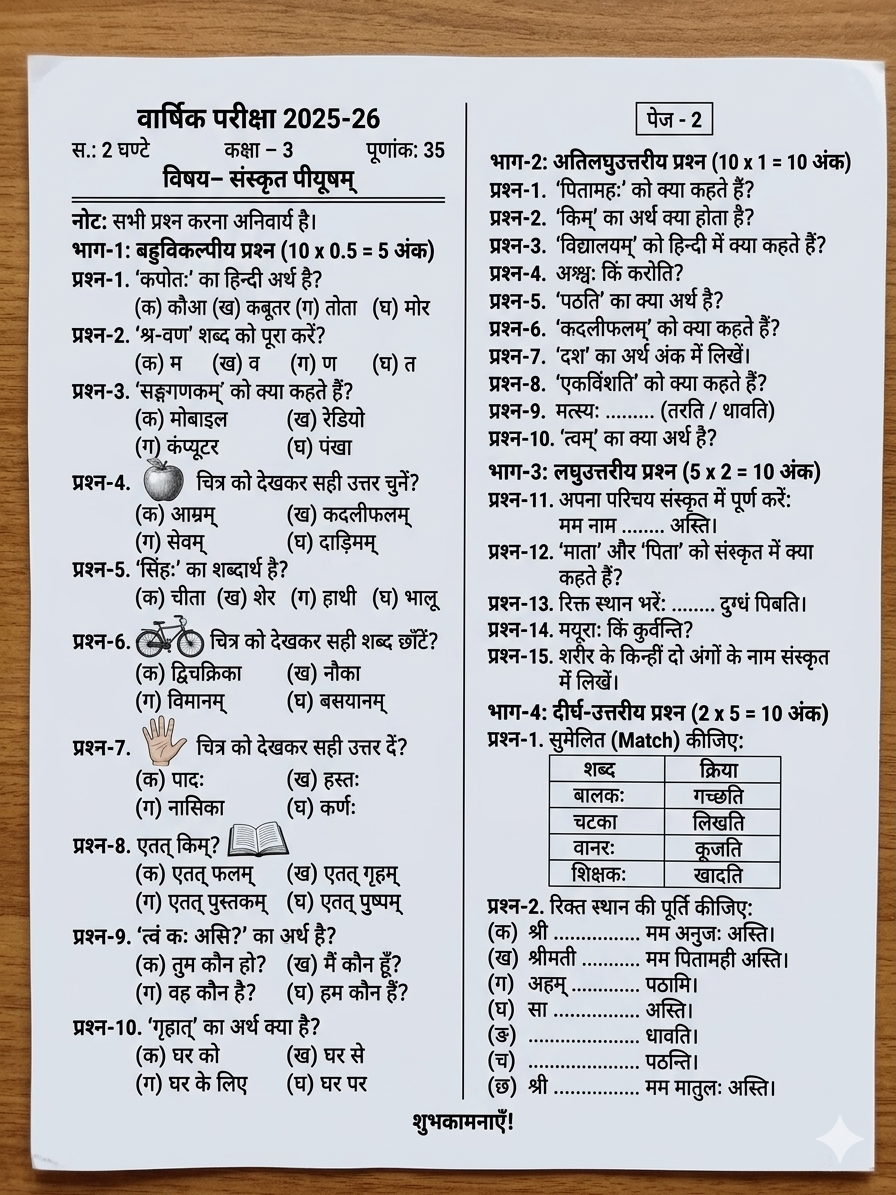 वार्षिक परीक्षा 2025-26
स.: 2 घण्टे कक्षा – 3 पूर्णांक: 35
विषय– संस्कृत पीयूषम्
नोट: सभी प्रश्न करना अनिवार्य है।
भाग-1: बहुविकल्पीय प्रश्न (10 x 0.5 = 5 अंक)
प्रश्न-1. ‘कपोतः’ का हिन्दी अर्थ है?
(क) कौआ (ख) कबूतर (ग) तोता (घ) मोर
प्रश्न-2. ‘श्र-वण’ शब्द को पूरा करें?
(क) म (ख) व (ग) ण (घ) त
प्रश्न-3. ‘सङ्गणकम्’ को क्या कहते हैं?
(क) मोबाइल (ख) रेडियो
(ग) कंप्यूटर (घ) पंखा
प्रश्न-4. चित्र को देखकर सही उत्तर चुनें?
(क) आम्रम् (ख) कदलीफलम्
(ग) सेवम् (घ) दाड़िमम्
प्रश्न-5. ‘सिंहः’ का शब्दार्थ है?
(क) चीता (ख) शेर (ग) हाथी (घ) भालू
प्रश्न-6. चित्र को देखकर सही शब्द छाँटें?
(क) द्विचक्रिका (ख) नौका
(ग) विमानम् (घ) बसयानम्
प्रश्न-7. चित्र को देखकर सही उत्तर दें?
(क) पादः (ख) हस्तः
(ग) नासिका (घ) कर्णः
प्रश्न-8. एतत् किम्?
(क) एतत् फलम् (ख) एतत् गृहम्
(ग) एतत् पुस्तकम् (घ) एतत् पुष्पम्
प्रश्न-9. ‘त्वं कः असि?’ का अर्थ है?
(क) तुम कौन हो? (ख) मैं कौन हूँ?
(ग) वह कौन है? (घ) हम कौन हैं?
प्रश्न-10. ‘गृहात्’ का अर्थ क्या है?
(क) घर को (ख) घर से
(ग) घर के लिए (घ) घर पर
पेज - 2
भाग-2: अतिलघुउत्तरीय प्रश्न (10 x 1 = 10 अंक)
प्रश्न-1. ‘पितामहः’ को क्या कहते हैं?
प्रश्न-2. ‘किम्’ का अर्थ क्या होता है?
प्रश्न-3. ‘विद्यालयम्’ को हिन्दी में क्या कहते हैं?
प्रश्न-4. अश्वः किं करोति?
प्रश्न-5. ‘पठति’ का क्या अर्थ है?
प्रश्न-6. ‘कदलीफलम्’ को क्या कहते हैं?
प्रश्न-7. ‘दश’ का अर्थ अंक में लिखें।
प्रश्न-8. ‘एकविंशति’ को क्या कहते हैं?
प्रश्न-9. मत्स्यः ......... (तरति / धावति)
प्रश्न-10. ‘त्वम्’ का क्या अर्थ है?
भाग-3: लघुउत्तरीय प्रश्न (5 x 2 = 10 अंक)
प्रश्न-11. अपना परिचय संस्कृत में पूर्ण करें:
मम नाम ........ अस्ति।
प्रश्न-12. ‘माता’ और ‘पिता’ को संस्कृत में क्या
कहते हैं?
प्रश्न-13. रिक्त स्थान भरें: ........ दुग्धं पिबति।
प्रश्न-14. मयूराः किं कुर्वन्ति?
प्रश्न-15. शरीर के किन्हीं दो अंगों के नाम संस्कृत
में लिखें।
भाग-4: दीर्घ-उत्तरीय प्रश्न (2 x 5 = 10 अंक)
प्रश्न-1. सुमेलित (Match) कीजिए:
शब्द क्रिया
बालकः गच्छति
चटका लिखति
वानरः कूजति
शिक्षकः खादति
प्रश्न-2. रिक्त स्थान की पूर्ति कीजिए:
(क) श्री ................ मम अनुजः अस्ति।
(ख) श्रीमती ........... मम पितामही अस्ति।
(ग) अहम् ............. पठामि।
(घ) सा ................ अस्ति।
(ङ) ..................... धावति।
(च) ..................... पठन्ति।
(छ) श्री ................ मम मातुलः अस्ति।
शुभकामनाएँ!